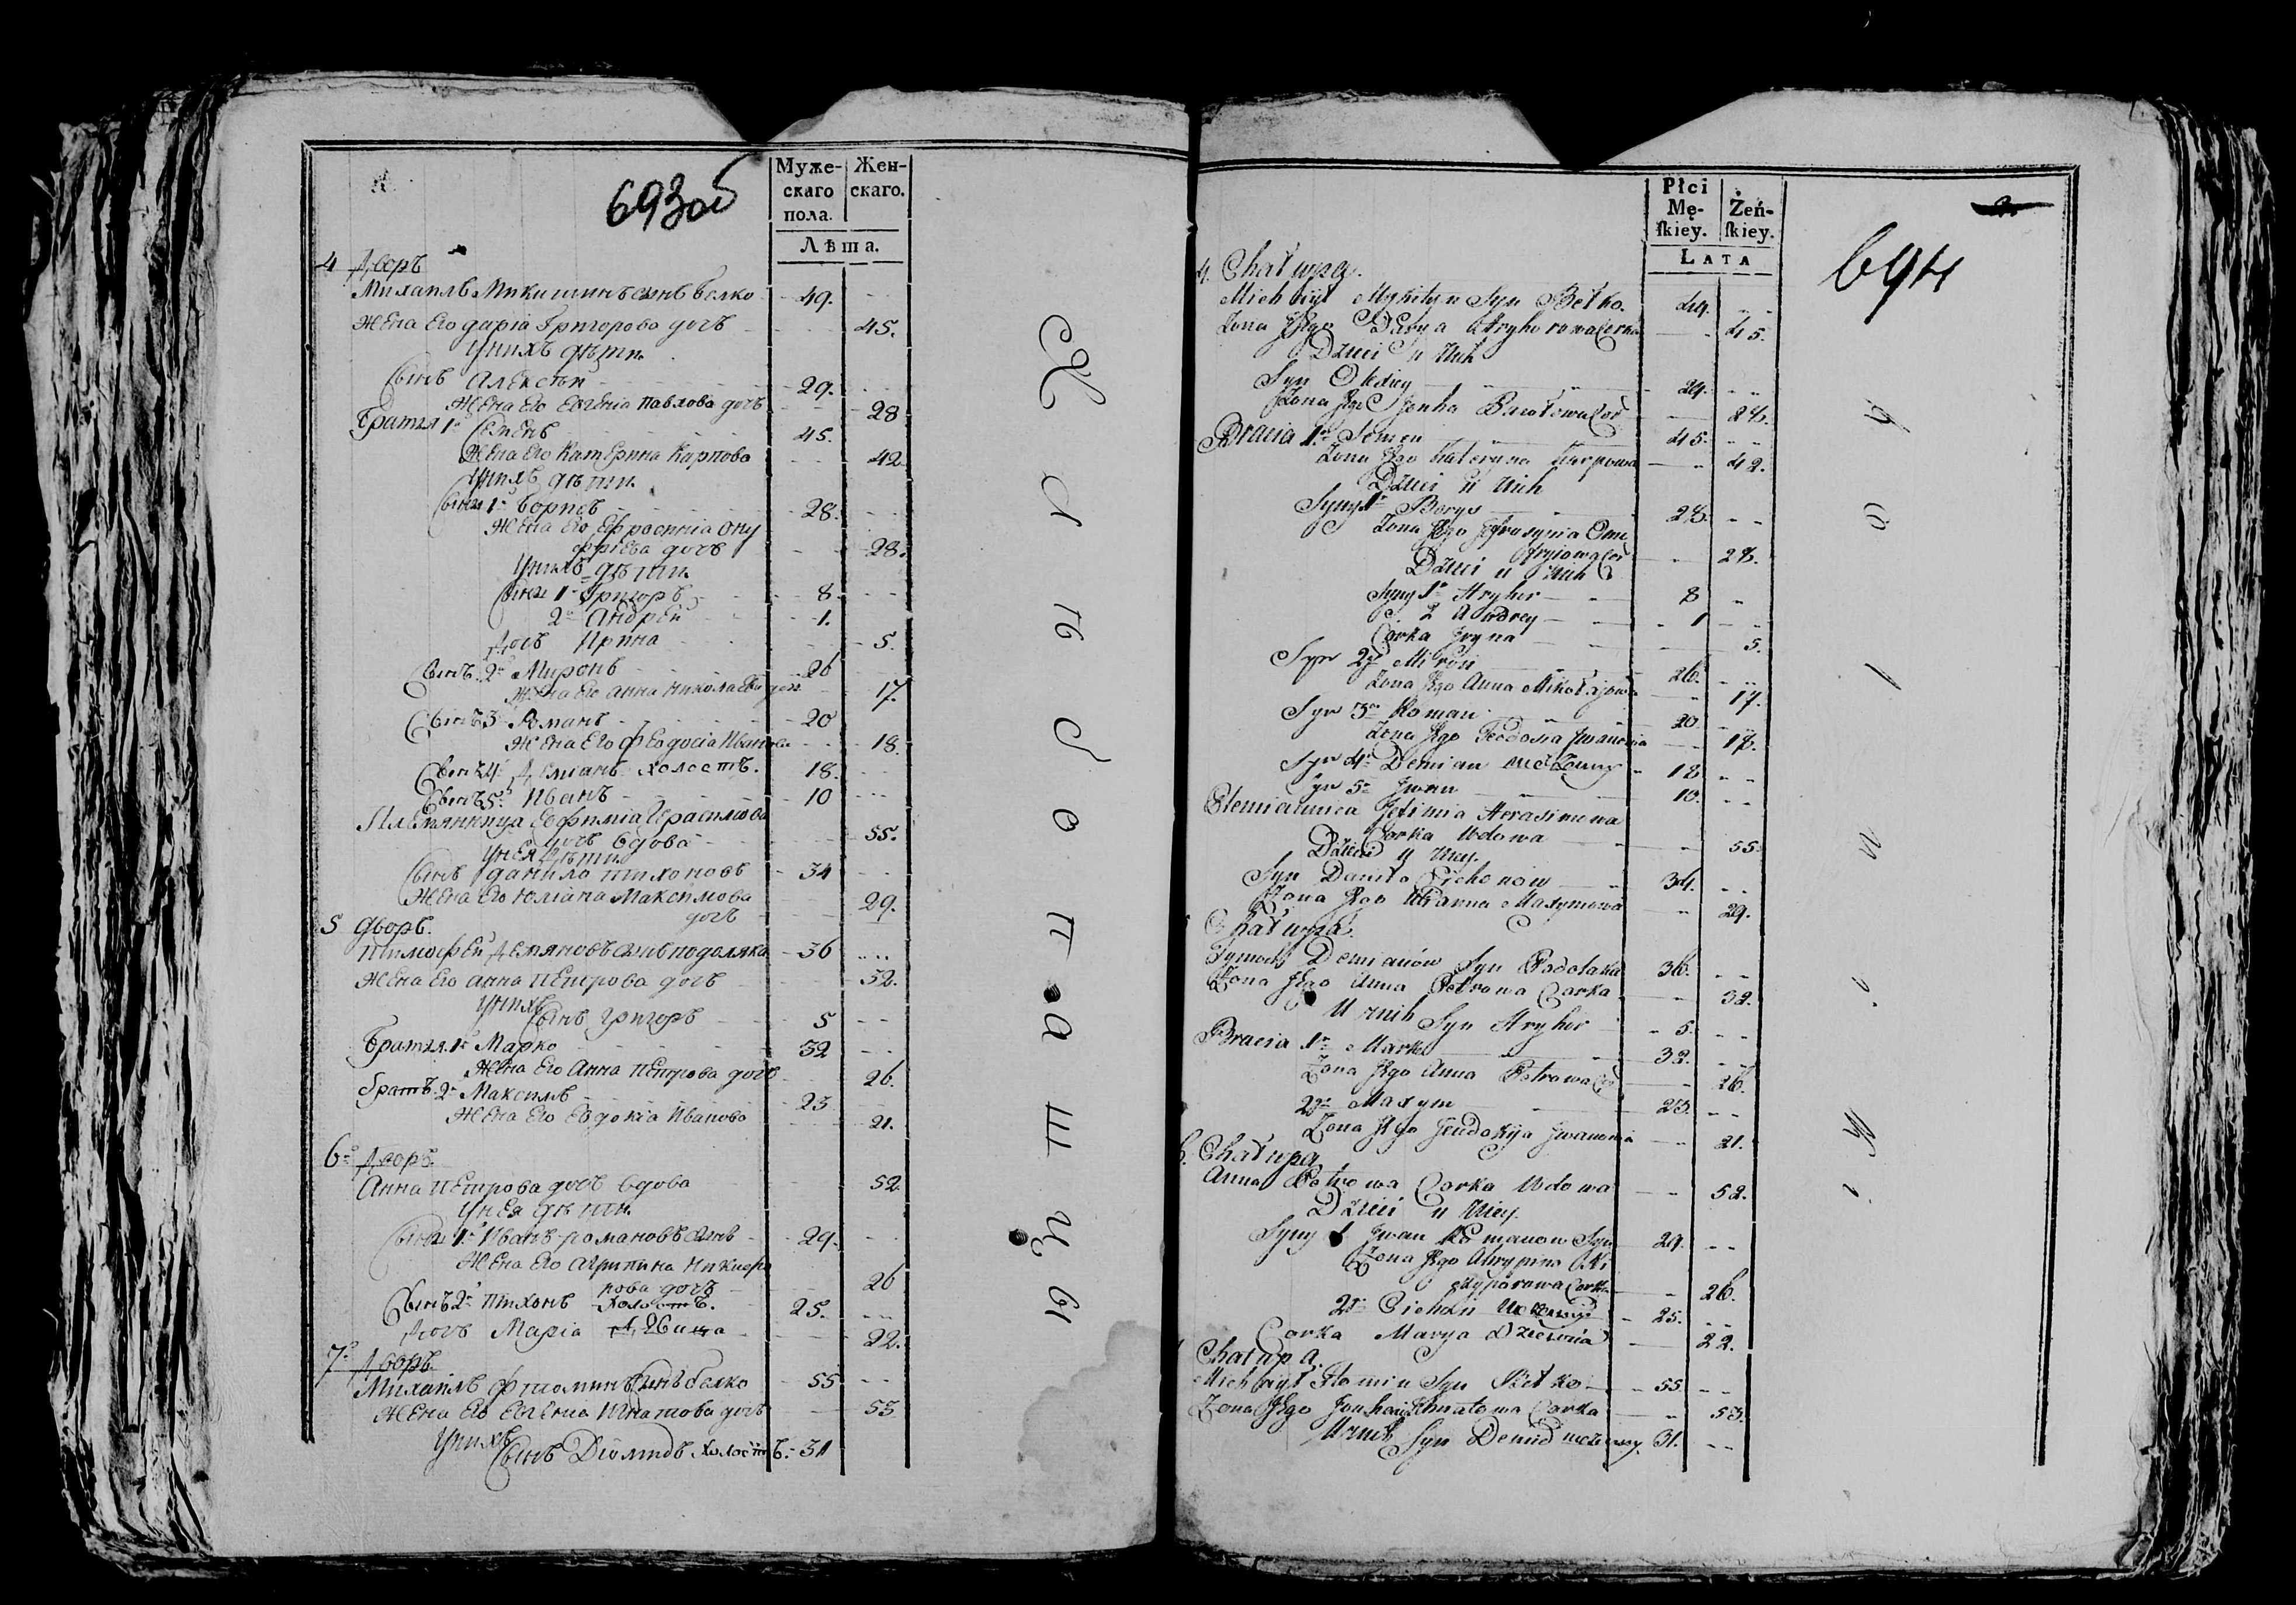 693об
Муже-
скаго
пола.
Жен-
скаго.
Лѣта.
4 Дворъ
Михаилъ Микитинъ сынъ белко 49.
Жена Его дарія Григорова дочь 45.
У нихъ дѣти
Сынъ Алексѣй 29.
Жена Его Евгенія Павлова дочь 28
Братья 1й Семенъ 45.
Жена Его Катерина Карпова 42
У нихъ дѣти
Сыны 1й Борисъ 28.
Жена Его Ефросинія Ону
фріева дочь 28.
У нихъ дѣти
Сыны 1й Григоръ 8
2й Андрей 1.
Дочь Ирина 5.
Сынъ 2й Миронъ 26
Жена Его Анна Николаева доч. 17.
Сынъ 3й Романъ 20
Жена Его Феодосіа Иванова 18.
Сынъ 4й Деміанъ холостъ. 18.
Сынъ 5й Иванъ 10
Племянница Евфиміа Герасимова
дочь вдова 55.
У нея дѣти
Сынъ данило тихоновъ 34
Жена Его Юліана Максимова
дочь 29.
5 дворъ.
Тимофей Демяновъ сынъ подоляка 36
Жена Его анна Петрова дочь 32.
У нихъ
Сынъ григоръ 5
Братья 1й Марко 32
Жена Его Анна Петрова дочь 26.
братъ 2й Максимъ 23
Жена Его Евдокіа Иванова 21.
6й Дворъ.
Анна Петрова дочь вдова 52
У нея дѣти
Сыны 1й Иванъ романовъ сынъ 29.
Жена Его агрипина Никифо
рова дочь 26
Сынъ 2й тихонъ холостъ. 25.
Дочь Маріа Дѣвица 22.
7й Дворъ.
Михаилъ Фтоминъ Сынъ белко 55
Жена Его Евгениа Игнатова дочь 53
У нихъ
Сынъ Діомидъ холостъ. 31
Хлѣбопашцы
Płci
Mę-
skiey.
Żeń-
skiey.
LATA
694
4. Chałupa.
Michaył Mykityn Syn Bełko. 49.
Zona Jego Darya Hryhorowa Corka 45.
Dzieci u Nich
Syn Olexiey 29.
Zona Jego Jewha Pawłowa Cor 28.
Bracia 1n Semen 45.
Zona Jego Kateryna Karpowa 42.
Dzieci u Nich
Syny 1n Borys 28.
Zona Jego Jefrosynia Onu
fryiowa Cor 28.
Dzieci u Nich
Syny 1n Hryhor 8
2 Andrey 1
Corka Jryna 5.
Syn 2gi Miron 26.
Zona Jego Anna Mikołajowa 17.
Syn 3n Roman 20
Zona Jego Teodosia Jwanowa 18.
Syn 4n Demian nieżonny 18
Syn 5n Jwan 10.
Plemiannica Jefimia Herasimowa
Corka Wdowa 55.
Dzieci u Niey.
Syn Daniło Tichonow 34.
Zona Jego Ulianna Maxymowa 29.
Chałupa.
Tymoch Demianow Syn Podolaka 36.
Zona Jego Anna Petrowa Corka 32.
U nich Syn Hryhor 5.
Bracia 1n Marko 32.
Zona Jego Anna Petrowa Co 26.
2gi Maxym 23.
Zona Jego Jewdokija Jwanowa 21.
6. Chałupa
Anna Petrowa Corka Wdowa 52.
Dzieci u Niey.
Syny 1 Jwan Romanow Syn 29.
Zona Jego Ahrypina Ni
kyporowa Corka 26.
2gi Tichon Nieżonny 25.
Corka Marya Dziewica 22.
Chałupa.
Michaył Ftomin Syn Bełko 55.
Zona Jego Jewha Jhnatowa Corka 53.
U nich Syn Demid nieżonny. 31.